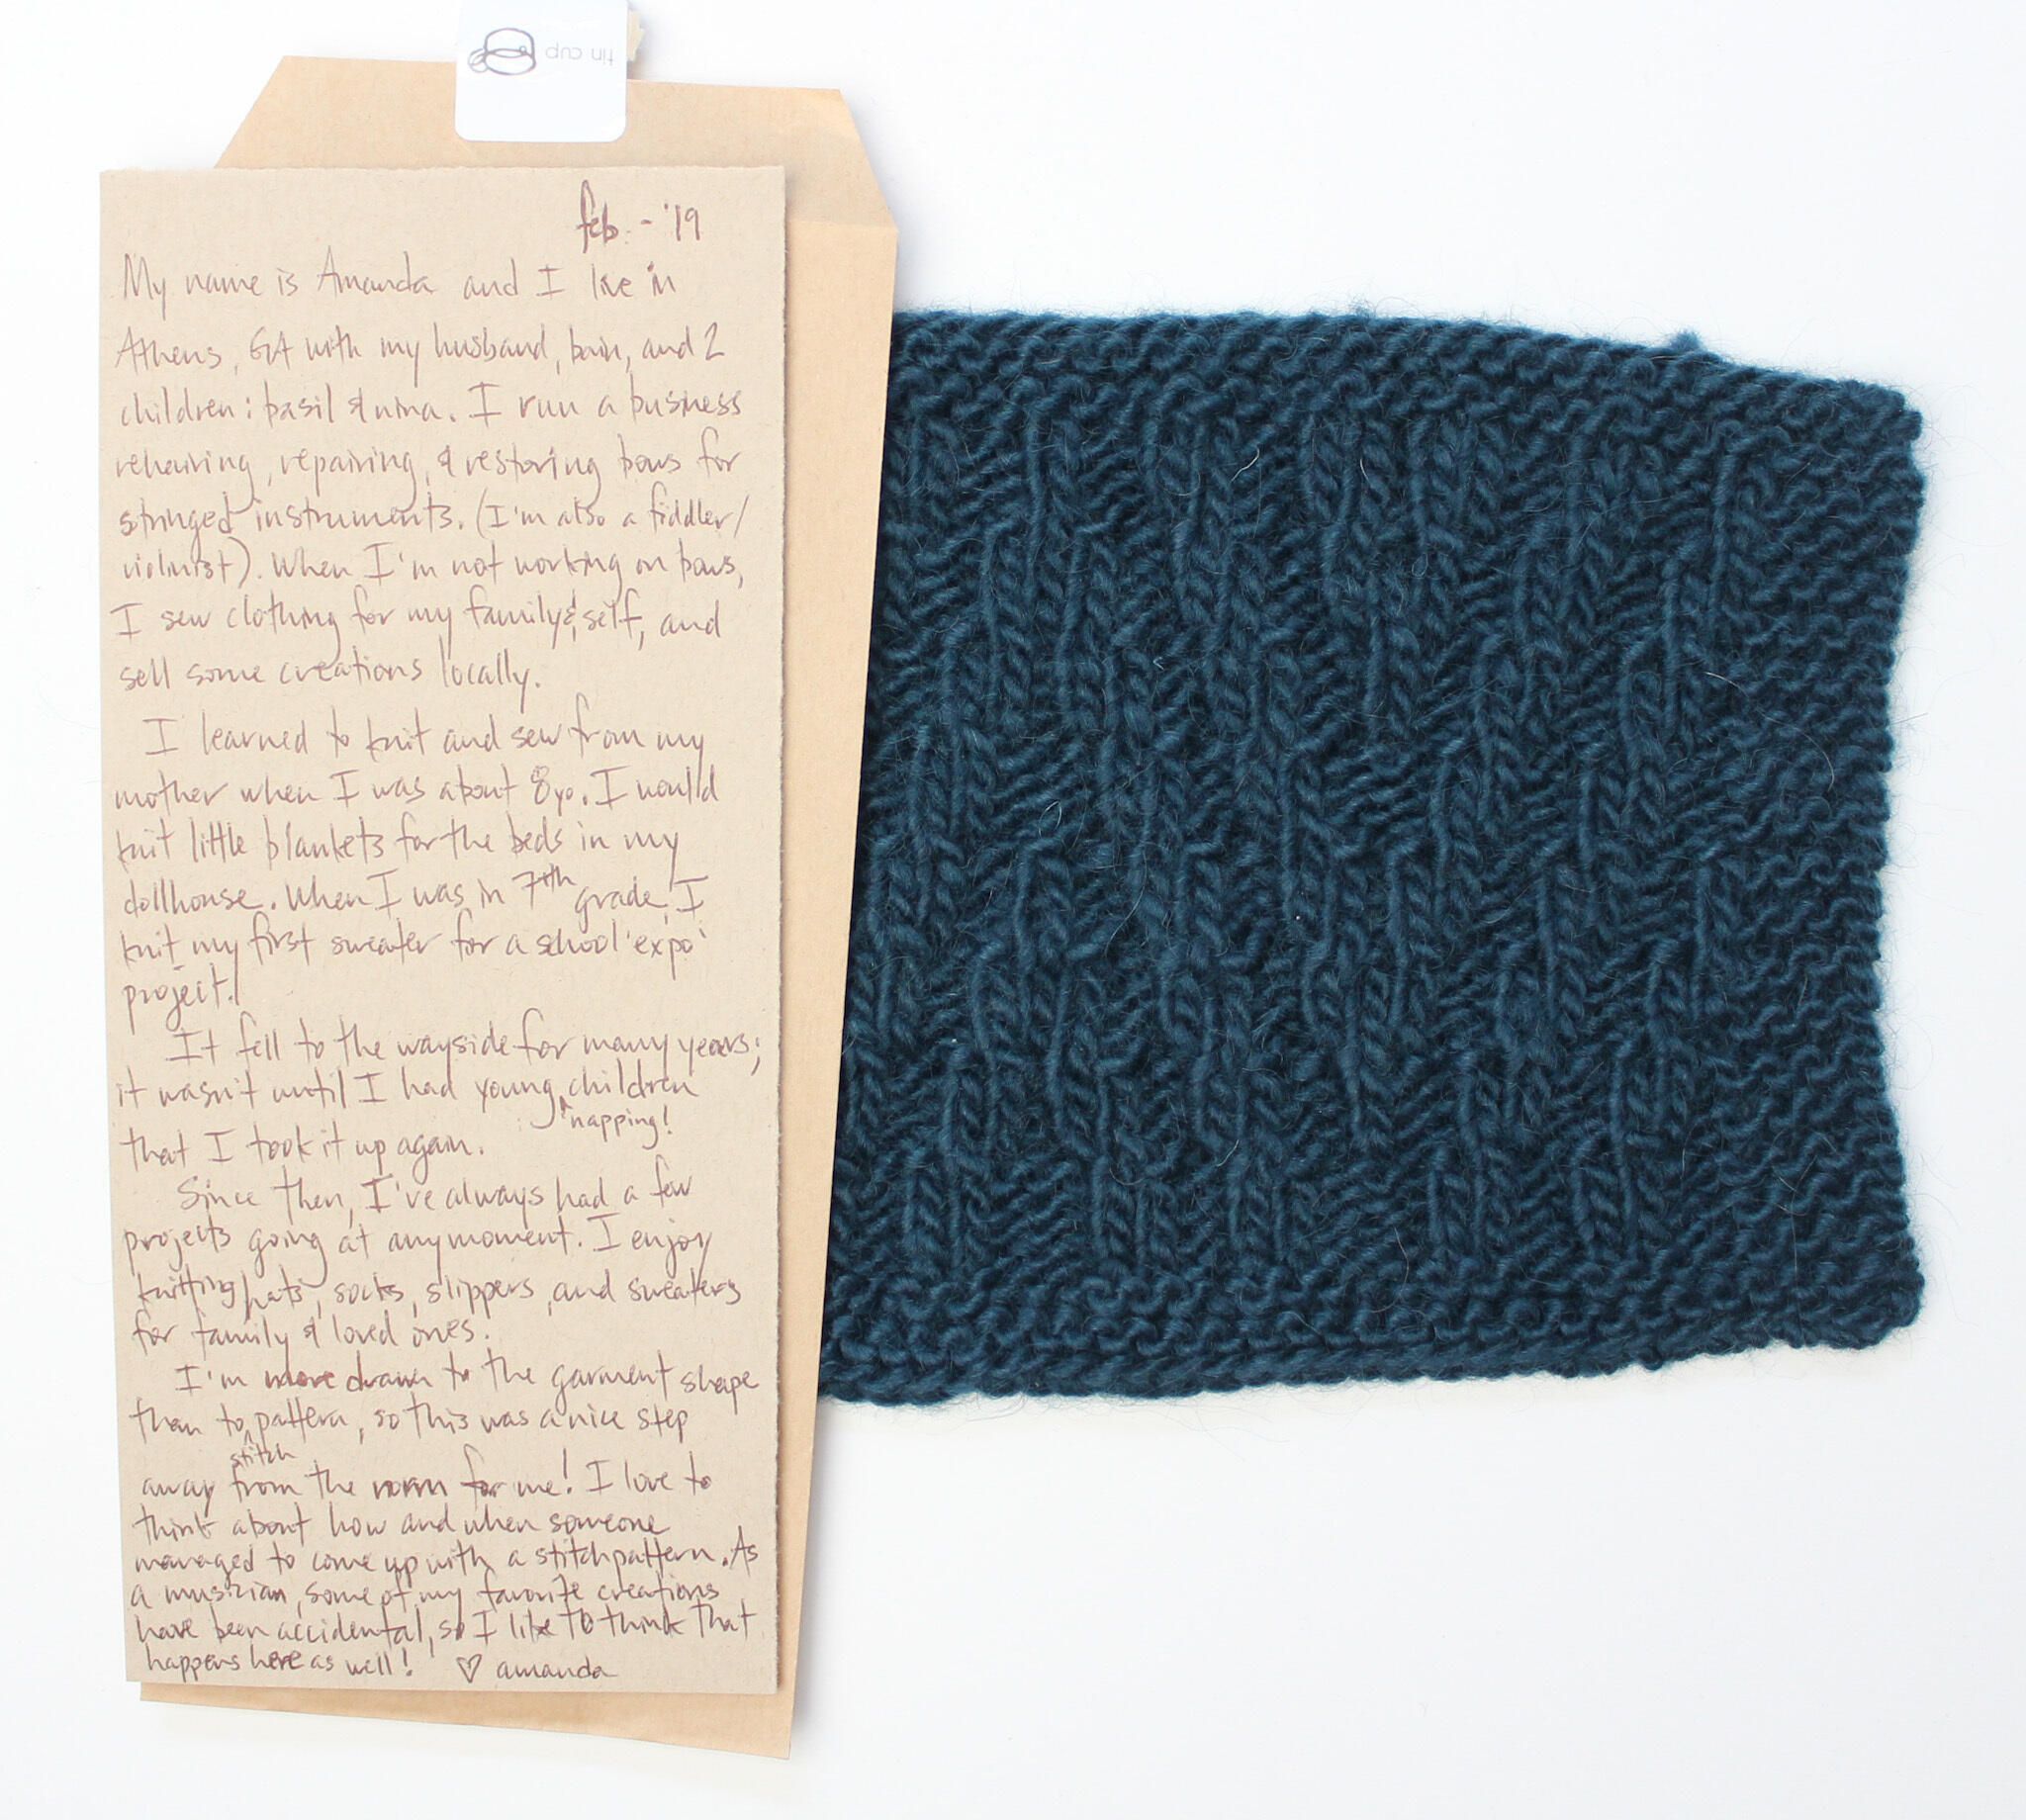 tin cup
feb. - '19
My name is Amanda and I live in
Athens, GA with my husband, bain, and 2
children: basil & nina. I run a business
rehairing, repairing, & restoring bows for
stringed instruments. (I'm also a fiddler/
violinist). When I'm not working on bows,
I sew clothing for my family & self, and
sell some creations locally.
I learned to knit and sew from my
mother when I was about 8 yo. I would
knit little blankets for the beds in my
dollhouse. When I was in 7th grade, I
knit my first sweater for a school 'expo'
project.
It fell to the wayside for many years;
it wasn't until I had young children
napping!
that I took it up again.
Since then, I've always had a few
projects going at any moment. I enjoy
knitting hats, socks, slippers, and sweaters
for family & loved ones.
I'm more drawn to the garment shape
than to pattern, so this was a nice step
stitch
away from the norm for me! I love to
think about how and when someone
managed to come up with a stitch pattern. As
a musician, some of my favorite creations
have been accidental, so I like to think that
happens here as well! ♡ amanda